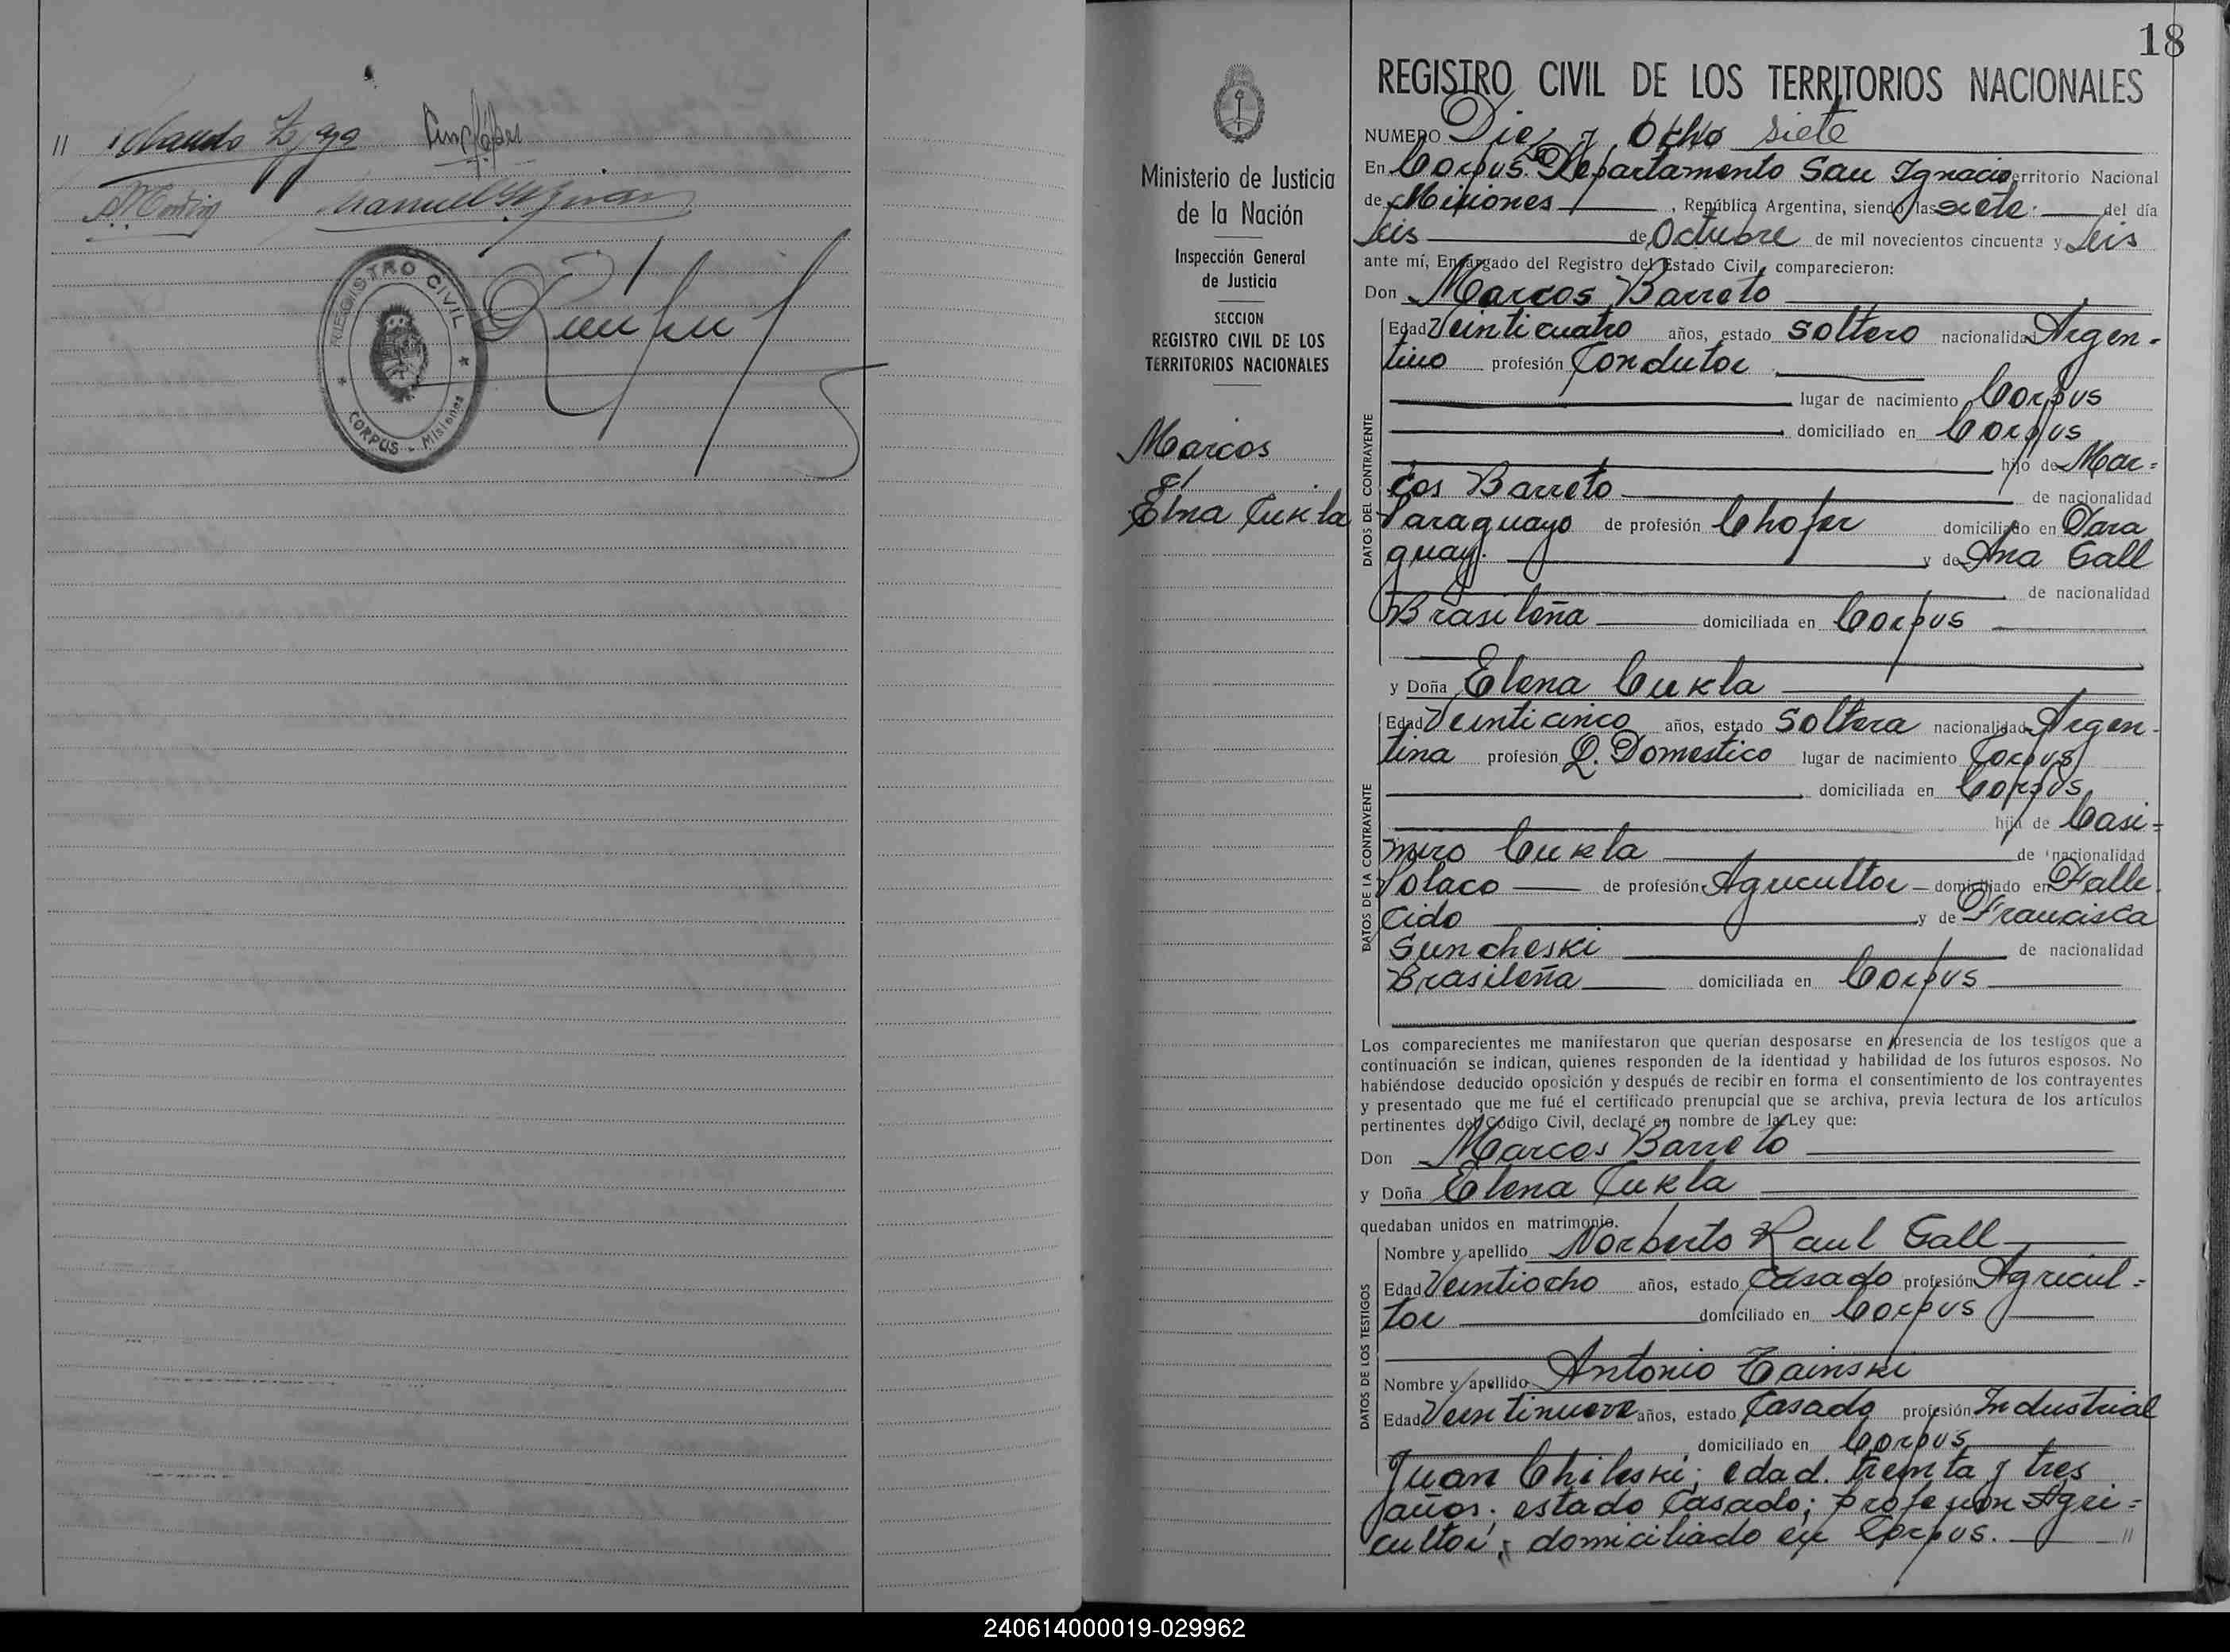 REGISTRO CIVIL
CORPUS - Misiones
18
REGISTRO CIVIL DE LOS TERRITORIOS NACIONALES
Ministerio de Justicia
de la Nación
Inspección General
de Justicia
SECCION
REGISTRO CIVIL DE LOS
TERRITORIOS NACIONALES
Marcos
Elna Cukla
NUMERO Diez y Ocho siete
En Corpus. Departamento San Ignacio territorio Nacional
de Misiones, República Argentina, siendo las siete del día
seis de Octubre de mil novecientos cincuenta y seis
ante mí, Encargado del Registro del Estado Civil, comparecieron:
Don Marcos Barreto
DATOS DEL CONTRAYENTE
Edad Veinticuatro años, estado soltero nacionalidad Argen-
tino profesión Condutor
lugar de nacimiento Corpus
domiciliado en Corpus
hijo de Mar=
cos Barreto de nacionalidad
Paraguayo de profesión Chofer domiciliado en Para
guay. y de Ana Gall
de nacionalidad
Brasileña domiciliada en Corpus
y Doña Elena Cukla
DATOS DE LA CONTRAYENTE
Edad Veinticinco años, estado soltera nacionalidad Argen-
tina profesión Q. Domestico lugar de nacimiento Corpus
domiciliada en Corpus
hija de Casi=
miro Cukla de nacionalidad
Polaco de profesión Agricultor domiciliado en Falle
cido y de Francisca
Suncheski de nacionalidad
Brasileña domiciliada en Corpus
Los comparecientes me manifestaron que querían desposarse en presencia de los testigos que a
continuación se indican, quienes responden de la identidad y habilidad de los futuros esposos. No
habiéndose deducido oposición y después de recibir en forma el consentimiento de los contrayentes
y presentado que me fué el certificado prenupcial que se archiva, previa lectura de los artículos
pertinentes del Código Civil, declaré en nombre de la Ley que:
Don Marcos Barreto
y Doña Elena Cukla
quedaban unidos en matrimonio.
DATOS DE LOS TESTIGOS
Nombre y apellido Norberto Raul Gall
Edad Veintiocho años, estado Casado profesión Agricul=
tor domiciliado en Corpus
Nombre y apellido Antonio Zainski
Edad Veintinueve años, estado Casado profesión Industrial
domiciliado en Corpus
Juan Chileski; edad. treinta y tres
años; estado Casado; profesion Agri=
cultor; domiciliado en Corpus. //
240614000019-029962